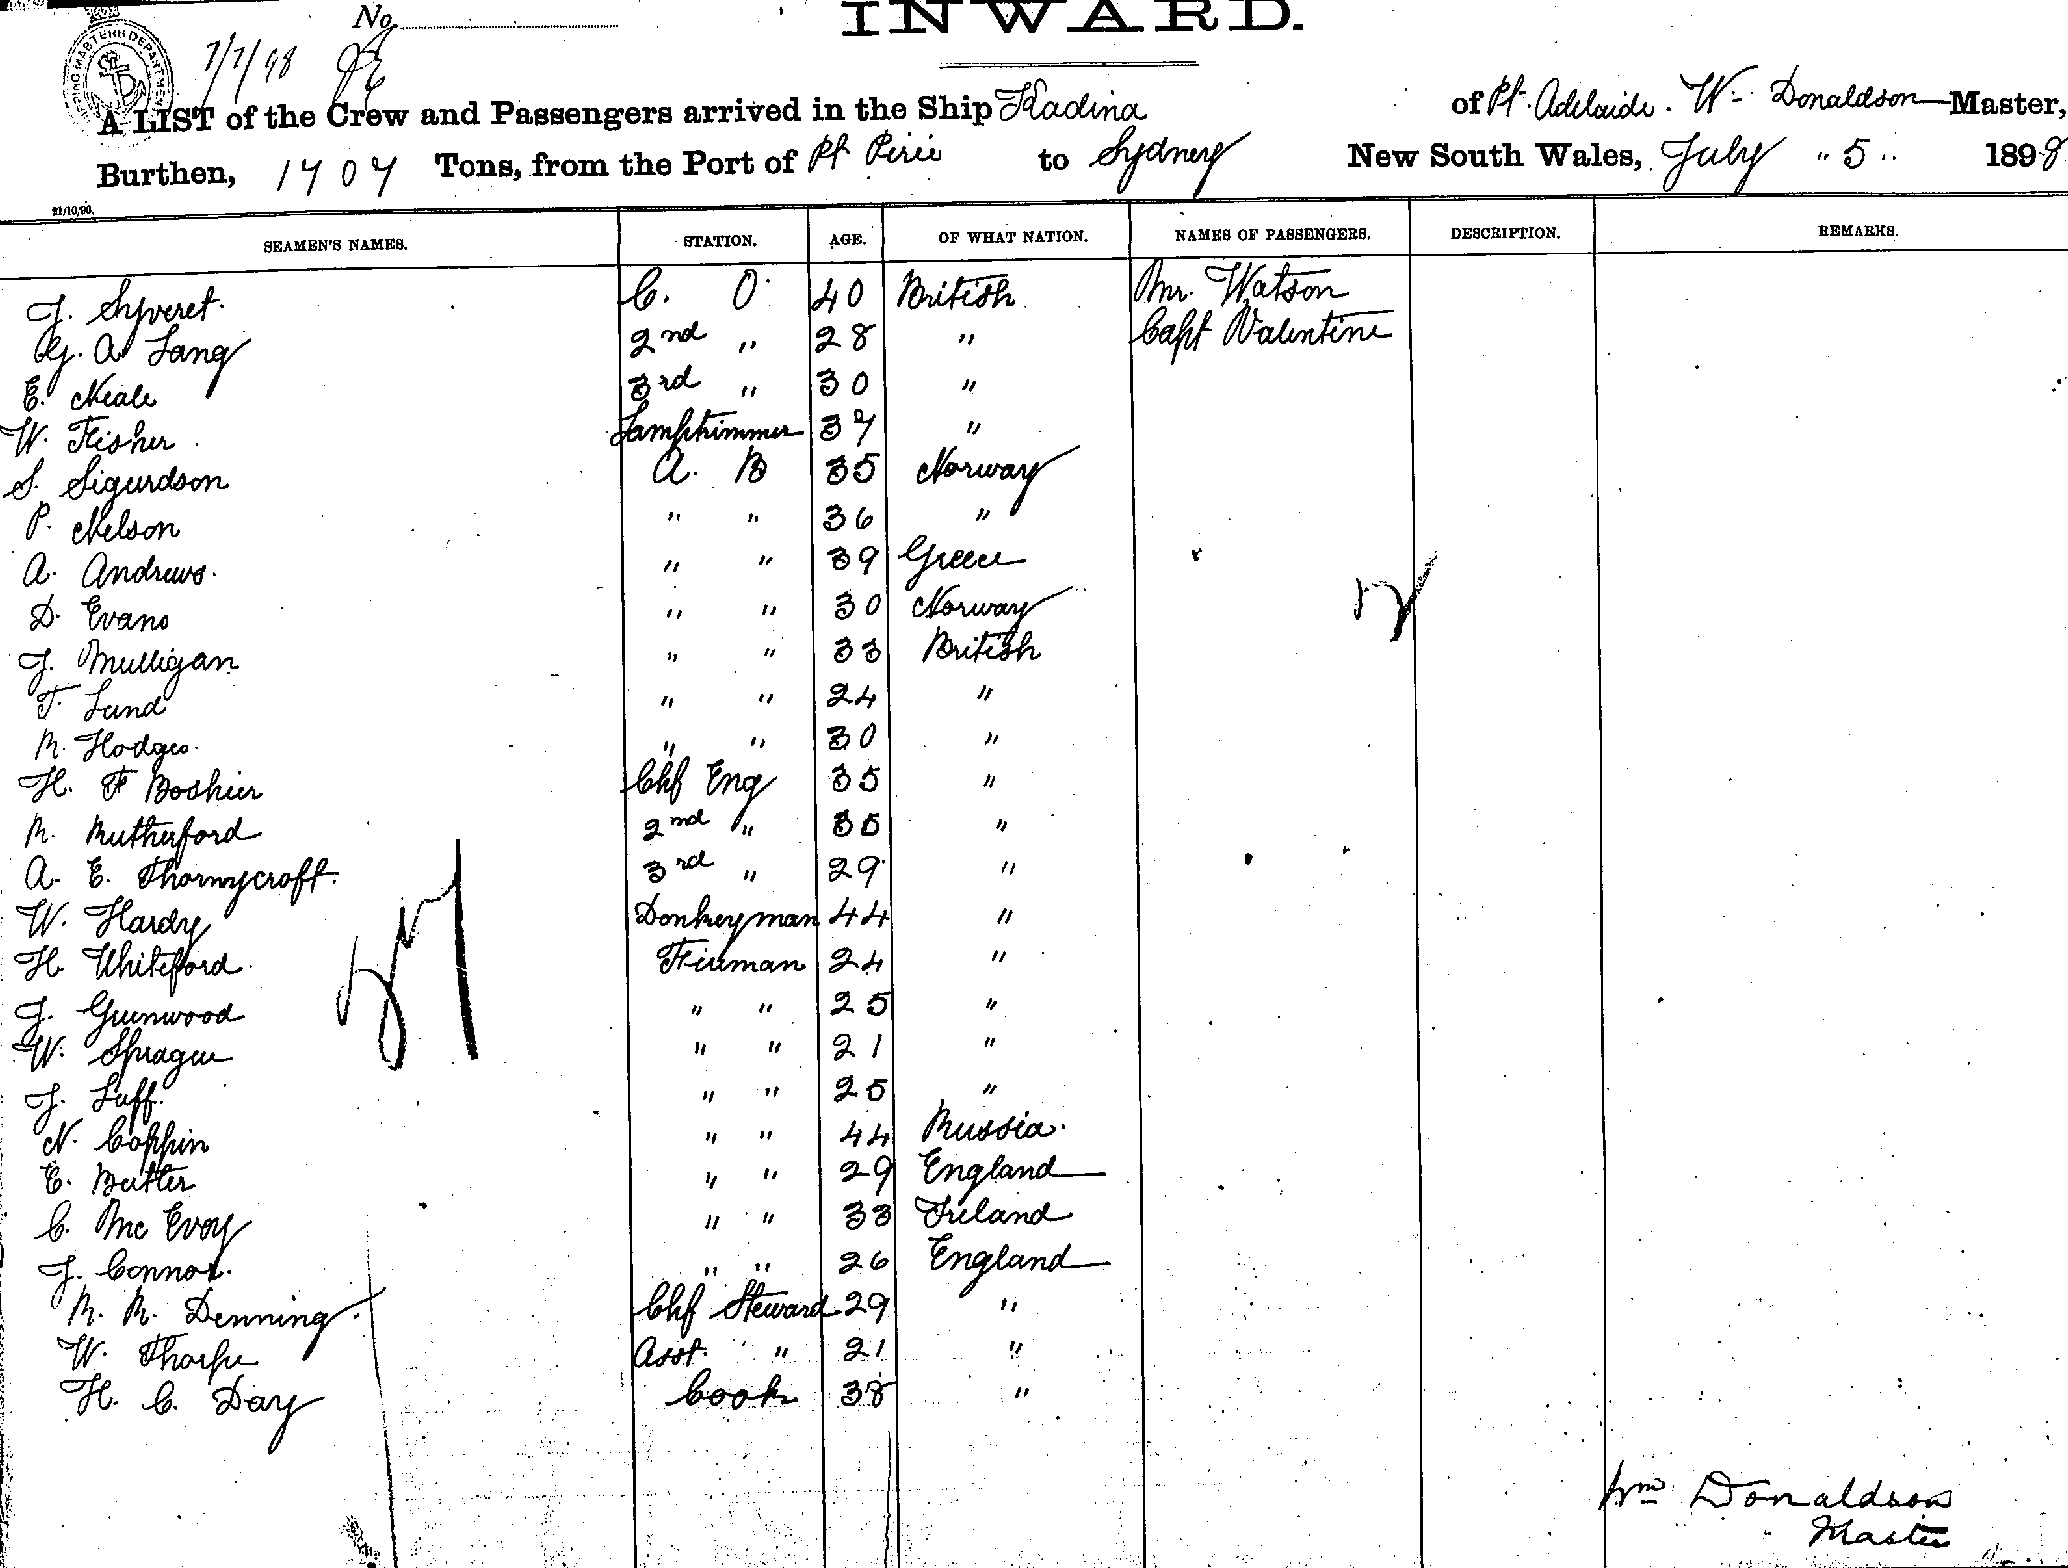 No
INWARD.
7/7/98
A LIST of the Crew and Passengers arrived in the Ship Kadina of Pt. Adelaide. W. Donaldson Master,
Burthen, 1707 Tons, from the Port of Pt Pirie to Sydney New South Wales, July "5" 1898
21/10,90.
SEAMEN'S NAMES. STATION. AGE. OF WHAT NATION. NAMES OF PASSENGERS. DESCRIPTION. REMARKS.
J. Syveret. C. O. 40 British Mr. Watson
G. A. Lang 2nd " 28 " Capt Valentine
E. Neale 3rd " 30 "
W. Fisher Lamptrimmer 37 "
S. Sigurdson A. B 35 Norway
P. Nelson " " 36 "
A. Andrews. " " 39 Greece
D. Evans " " 30 Norway
J. Mulligan " " 33 British
T. Lund " " 24 "
R. Hodges. " " 30 "
H. F Boshier Chf Eng 35 "
R. Rutherford 2nd " 35 "
A. E. Thornycroft. 3rd " 29 "
W. Hardy Donkeyman 44 "
H. Whiteford Fireman 24 "
J. Greenwood " " 25 "
W. Sprague " " 21 "
J. Luff. " " 25 "
N. Coppin " " 44 Russia.
E. Butler " " 29 England
C. Mc Evoy " " 33 Ireland
J. Connor. " " 26 England
R. R. Denning. Chf Steward 29 "
W. Thorpe Asst. " 21 "
H. C. Day Cook 38 "
Wm Donaldson
Master